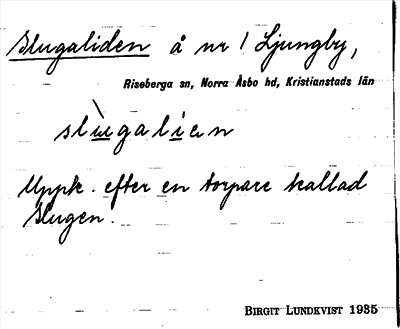 Slugaliden å nr 1 Ljungby,
Riseberga sn, Norra Åsbo hd, Kristianstads län
slùgalien
Uppk. efter en torpare kallad
Slugen.
BIRGIT LUNDKVIST 1935